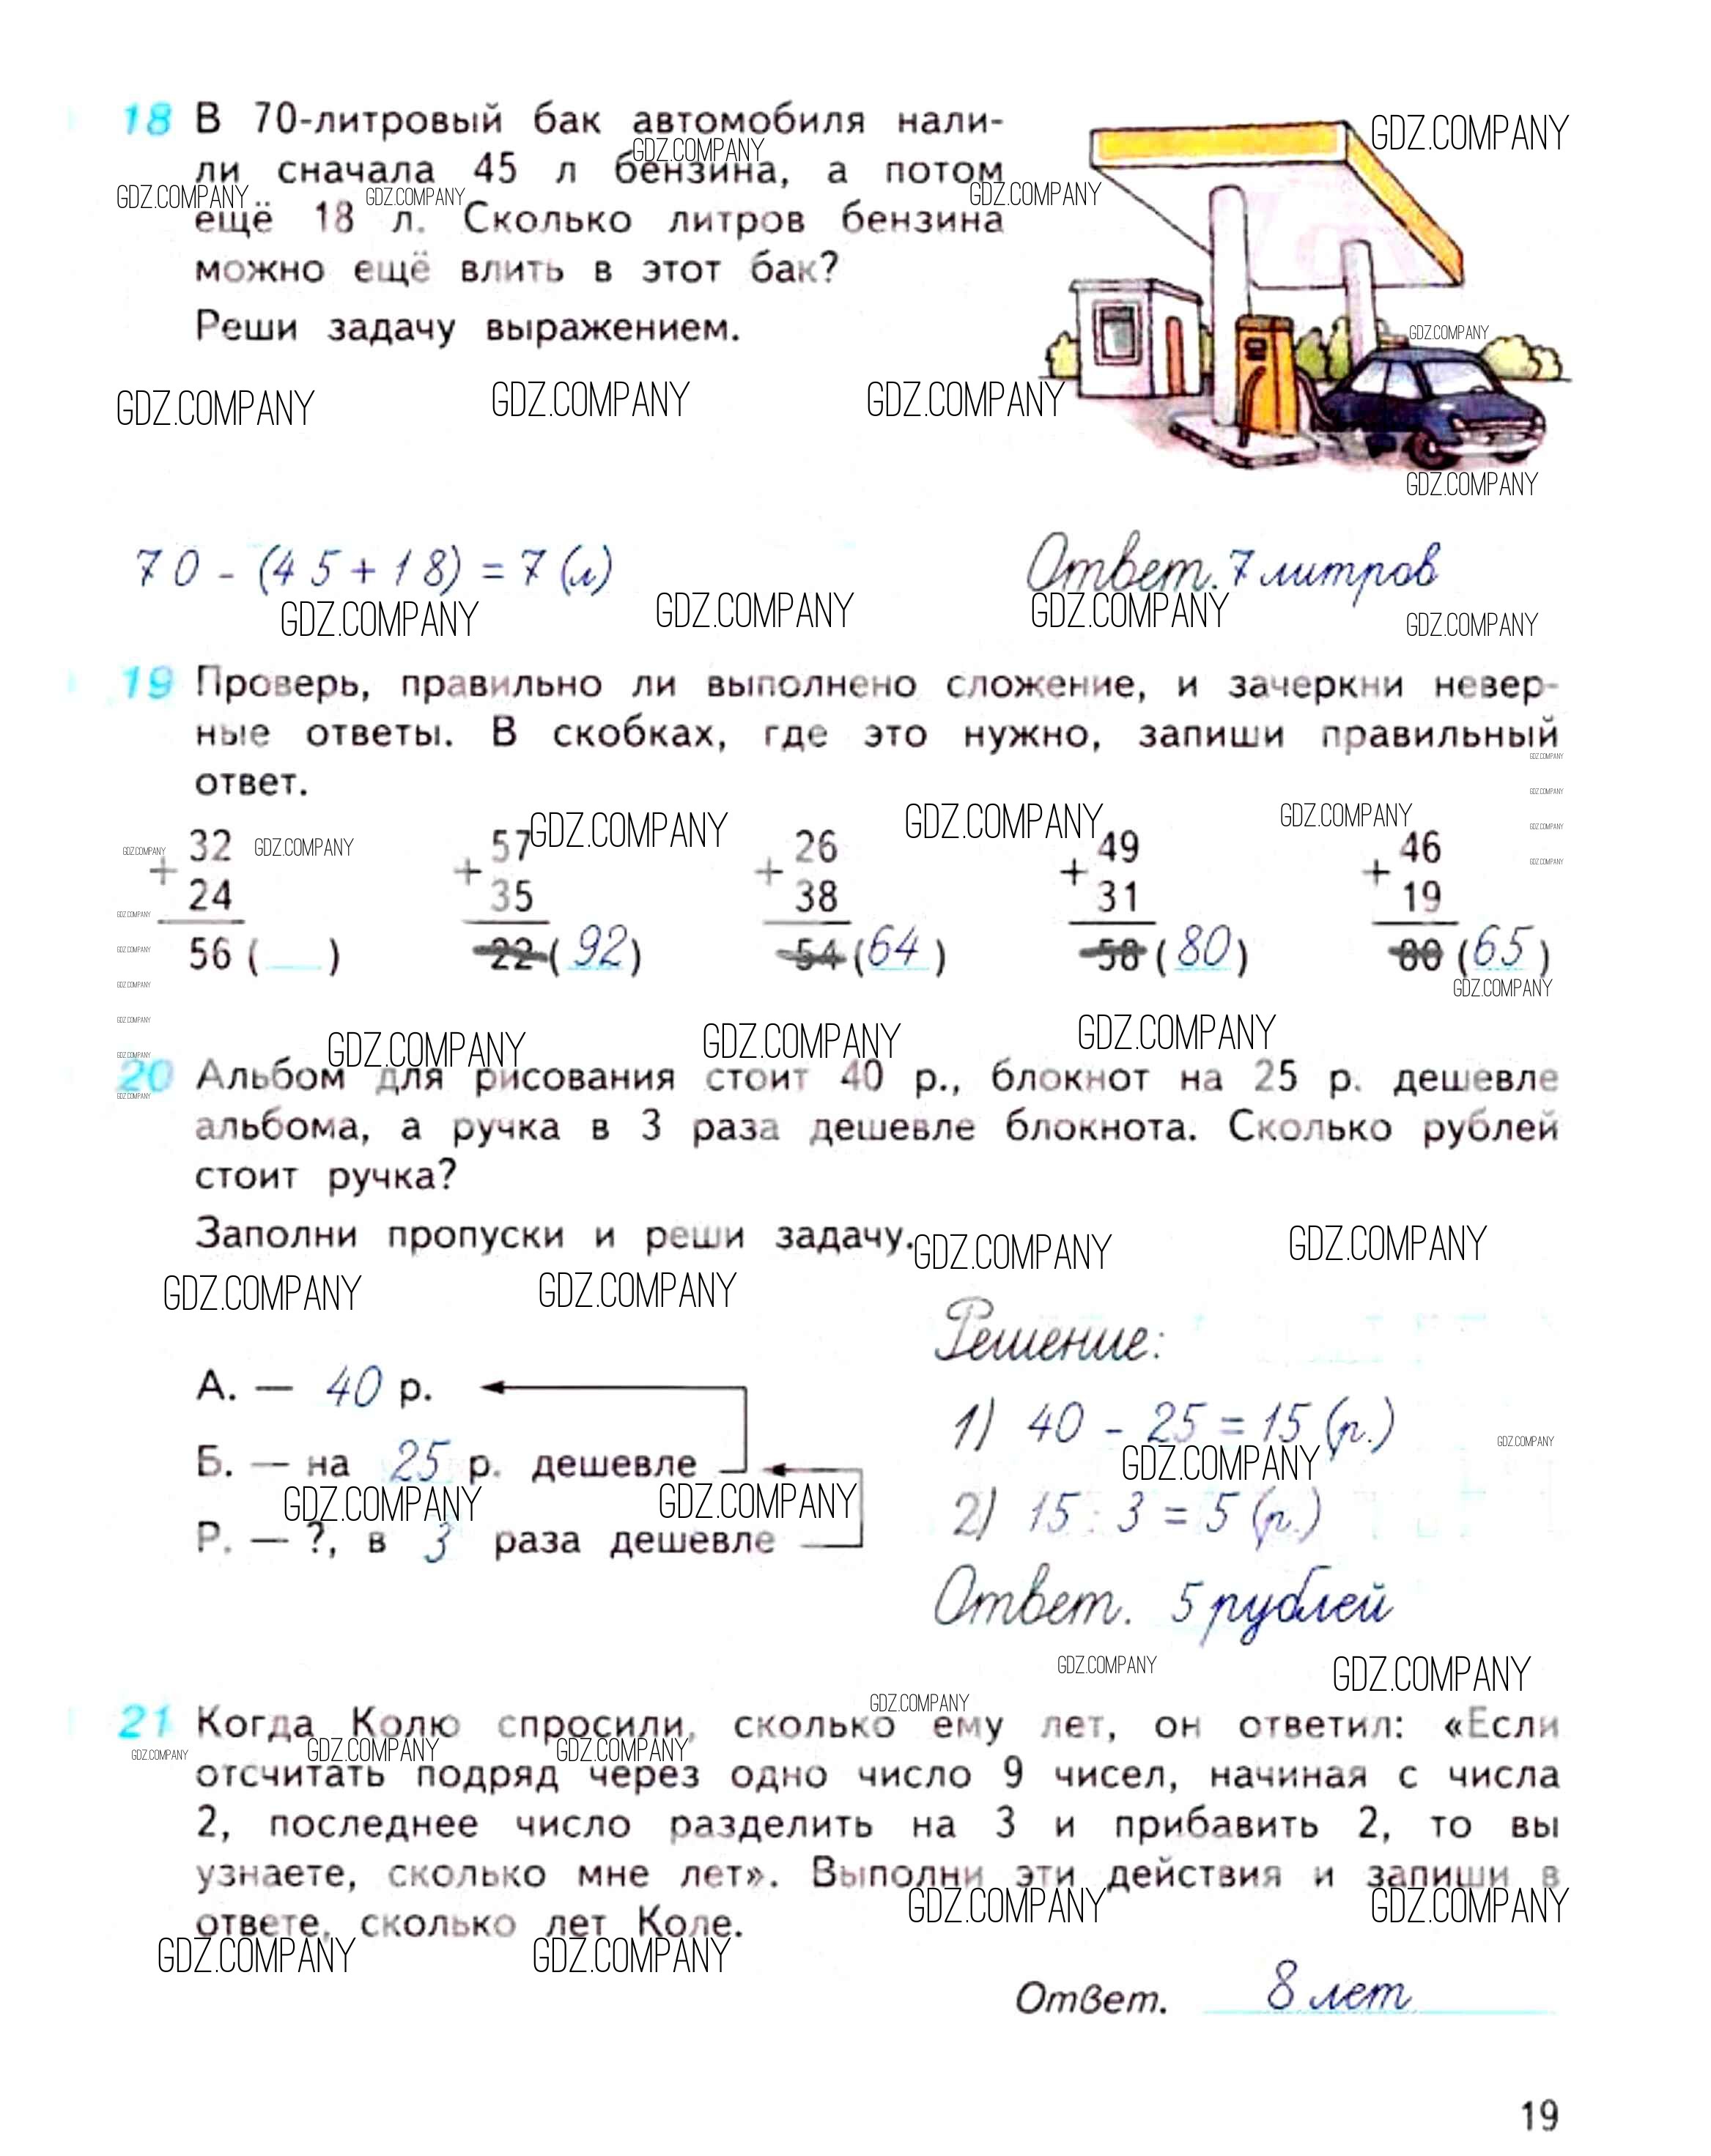 18 В 70-литровый бак автомобиля нали-
ли сначала 45 л бензина, а потом
ещё 18 л. Сколько литров бензина
можно ещё влить в этот бак?
Реши задачу выражением.
GDZ.COMPANY
70 - (45 + 18) = 7 (л)
Ответ. 7 литров
19 Проверь, правильно ли выполнено сложение, и зачеркни невер-
ные ответы. В скобках, где это нужно, запиши правильный
ответ.
+ 32 + 57 + 26 + 49 + 46
24 35 38 31 19
56 ( ) 22 (92) 54 (64) 58 (80) 80 (65)
20 Альбом для рисования стоит 40 р., блокнот на 25 р. дешевле
альбома, а ручка в 3 раза дешевле блокнота. Сколько рублей
стоит ручка?
Заполни пропуски и реши задачу.
А. — 40 р.
Б. — на 25 р. дешевле
Р. — ?, в 3 раза дешевле
Решение:
1) 40 - 25 = 15 (р.)
2) 15 : 3 = 5 (р.)
Ответ. 5 рублей
21 Когда Колю спросили, сколько ему лет, он ответил: «Если
отсчитать подряд через одно число 9 чисел, начиная с числа
2, последнее число разделить на 3 и прибавить 2, то вы
узнаете, сколько мне лет». Выполни эти действия и запиши в
ответе, сколько лет Коле.
Ответ. 8 лет
19